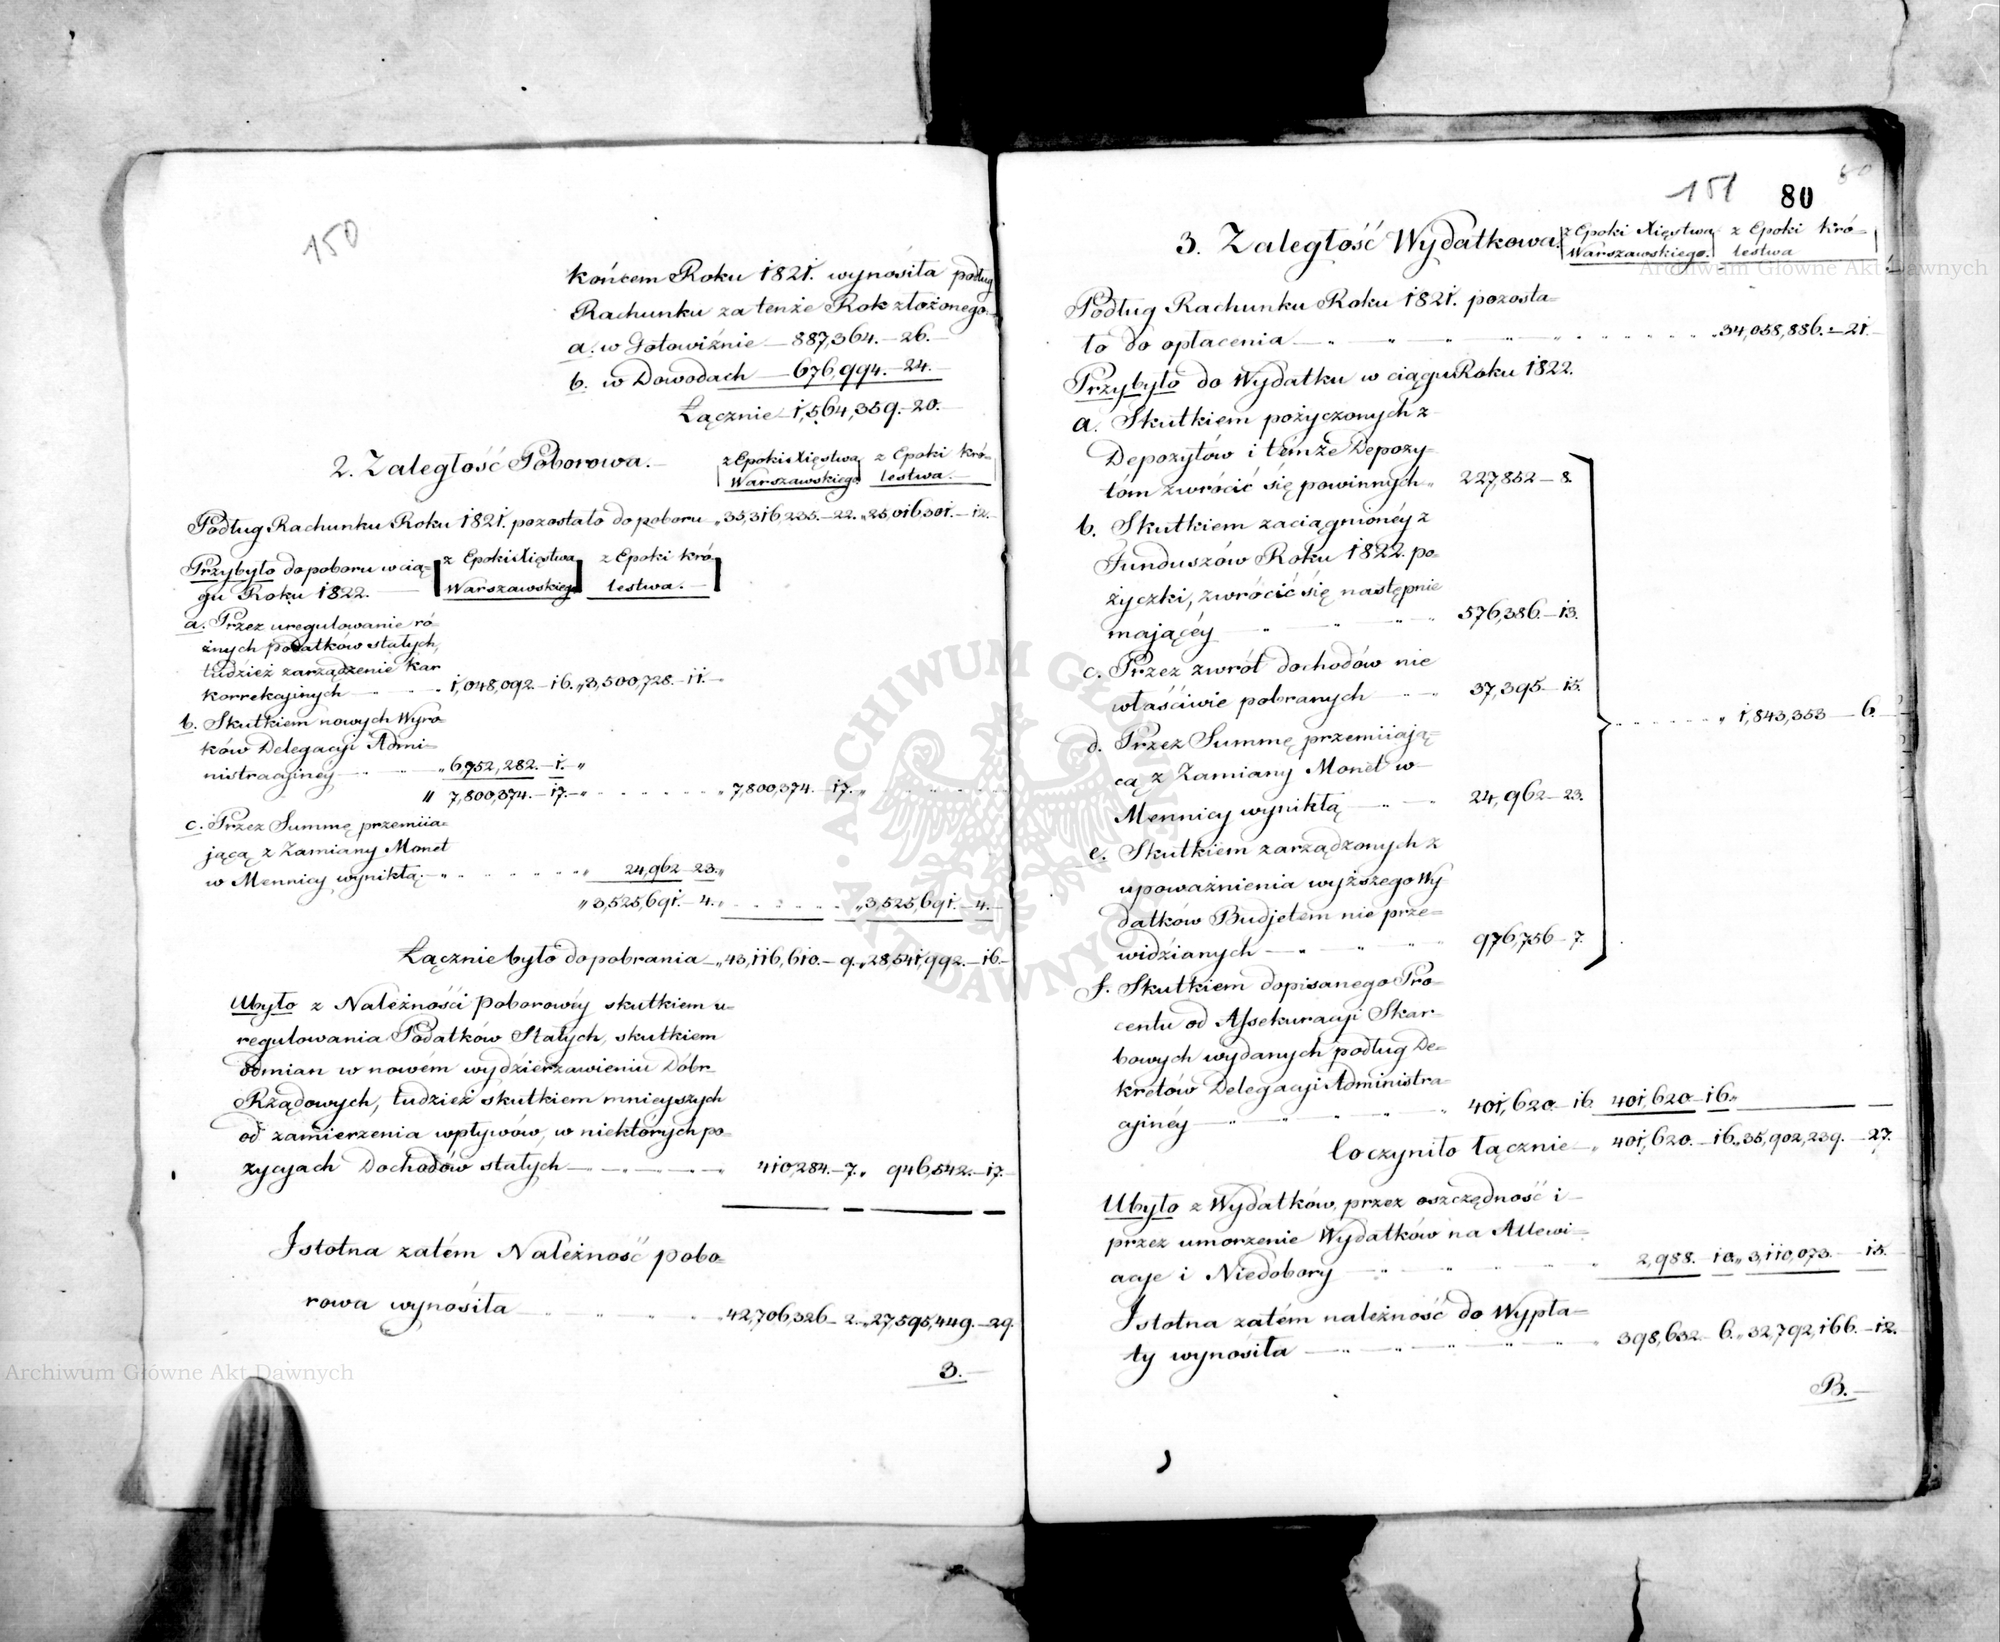 150
końcem Roku 1821. wynosiła podług
Rachunku za tenże Rok złożonego.
a. w Gotowiźnie — 887,364. — 26.
b. w Dowodach — 676,994. — 24.
Łącznie — 1,564,359. — 20.
2. Zaległość Poborowa. —
z Epoki Xięstwa Warszawskiego
z Epoki Kró-
lestwa. —
Podług Rachunku Roku 1821. pozostało do poboru „ 35,316,235. — 22. „ 25,016,301. — 12. —
Przybyło do poboru w cią-
gu Roku 1822. —
z Epoki Xięstwa
Warszawskiego
z Epoki Kró-
lestwa. —
a. Przez uregulowanie ró-
żnych podatków stałych,
tudzież zarządzenie kar
korrekcyjnych — 1,048,092. — 16. „ 3,500,728. — 11. —
b. Skutkiem nowych Wyro-
ków Delegacyi Admi-
nistracyiney — „ 6,752,282. — 1. „
„ 7,800,374. — 17. — „ 7,800,374. — 17. „
c. Przez Summę przemiia-
jącą z Zamiany Monet
w Mennicy wynikłą. — „ 24,962 — 23. „
„ 3,525,691. — 4. „ „ 3,525,691. — 4. —
Łącznie było do pobrania — „ 43,116,610. — 9. „ 28,541,992. — 16. —
Ubyło z Należności poborowéy skutkiem u-
regulowania Podatków Stałych, skutkiem
odmian w nowém wydzierżawieniu Dóbr
Rządowych, tudzież skutkiem mnieyszych
od zamierzenia wpływów, w niektórych po-
zycyach Dochodów stałych — 410,284. — 7. „ 946,542. — 17. —
Istotna zatém Należność pobo-
rowa wynosiła „ 42,706,326 — 2. „ 27,595,449. — 29.
3. —
151
80
3. Zaległość Wydatkowa.
z Epoki Xięstwa
Warszawskiego.
z Epoki Kró-
lestwa
Podług Rachunku Roku 1821. pozosta-
ło do opłacenia — „ 34,058,886. — 21. —
Przybyło do Wydatku w ciągu Roku 1822.
a. Skutkiem pożyczonych z
Depozytów i témże Depozy-
tóm zwrócić się powinnych „ 227,852 — 8.
b. Skutkiem zaciągnionéy z
Funduszów Roku 1822. po-
życzki, zwrócić się następnie
maiącéy — 576,386. — 13.
c. Przez zwrót dochodów nie
właściwie pobranych — 37,395. — 15.
„ 1,843,353 — 6.
d. Przez Summę przemiiają-
cą z Zamiany Monet w
Mennicy wynikłą — 24,962 — 23.
e. Skutkiem zarządzonych z
upoważnienia wyższego Wy-
datków Budjetem nie prze-
widzianych — 976,756 — 7.
f. Skutkiem dopisanego Pro-
centu od Assekuracyi Skar-
bowych wydanych podług De-
kretów Delegacyi Administra-
cyinéy — 401,620. — 16. 401,620. — 16. „
Co czyniło łącznie „ 401,620. — 16. „ 35,902,239. — 27.
Ubyło z Wydatków, przez oszczędność i
przez umorzenie Wydatków na Allewi-
acye i Niedobory — 2,988. — 10. „ 3,110,073. — 15.
Istotna zatém należność do Wypła-
ty wynosiła — 398,632 — 6. „ 32,792,166. — 12.
B. —
Archiwum Główne Akt Dawnych
Archiwum Główne Akt Dawnych
ARCHIWUM GŁÓWNE AKT DAWNYCH